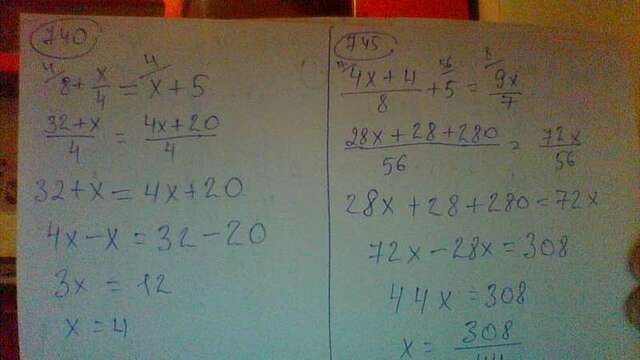 740
4/ 8 + x/4 = 4/ x + 5
32+x/4 = 4x+20/4
32+x = 4x+20
4x-x = 32-20
3x = 12
x = 4
745
7/ 4x+4/8 + 56/ 5 = 8/ 9x/7
28x+28+280/56 = 72x/56
28x+28+280=72x
72x-28x=308
44x=308
x= 308/44